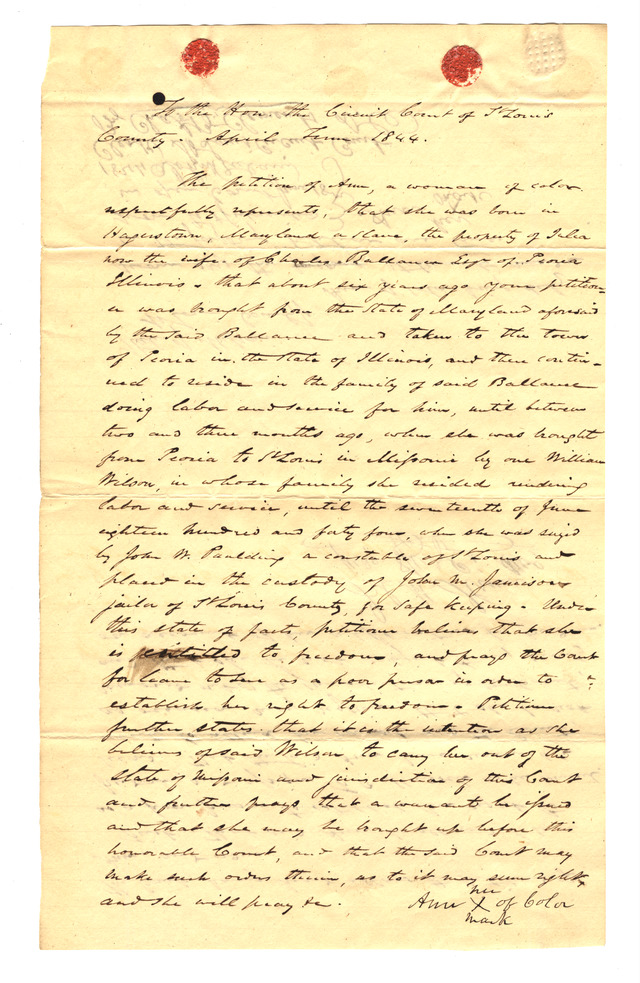 To the Hon. the Circuit Court of St Louis
County. April Term 1844.
The petition of Ann, a woman of color
respectfully represents, that she was born in
Hagerstown, Maryland a slave, the property of Julia
now the wife of Charles Ballance Esqr of Peoria
Illinois - that about six years ago your petition-
er was brought from the State of Maryland aforesaid
by the said Ballance and taken to the town
of Peoria in the State of Illinois, and there contin-
ued to reside in the family of said Ballance
doing labor and service for him, until between
two and three months ago, when she was brought
from Peoria to St Louis in Missouri by one William
Wilson, in whose family she resided rendering
labor and service, until the seventeenth of June
eighteen hundred and forty four, when she was seized
by John W. Paulding a constable of St Louis and
placed in the custody of John M. Jamison
jailor of St Louis County, for safe keeping - Under
this state of facts, petitioner believes that she
is entitled to freedom, and prays the Court
for leave to sue as a poor person in order to
establish her right to freedom - Petitioner
further states that it is the intention as she
believes of said Wilson to carry her out of the
State of Missouri and jurisdiction of this Court
and further prays that a warrant be issued
and that she may be brought up before this
honorable Court, and that the said Court may
make such orders therein, as to it may seem right
and she will pray &c.
Ann her X mark of Color